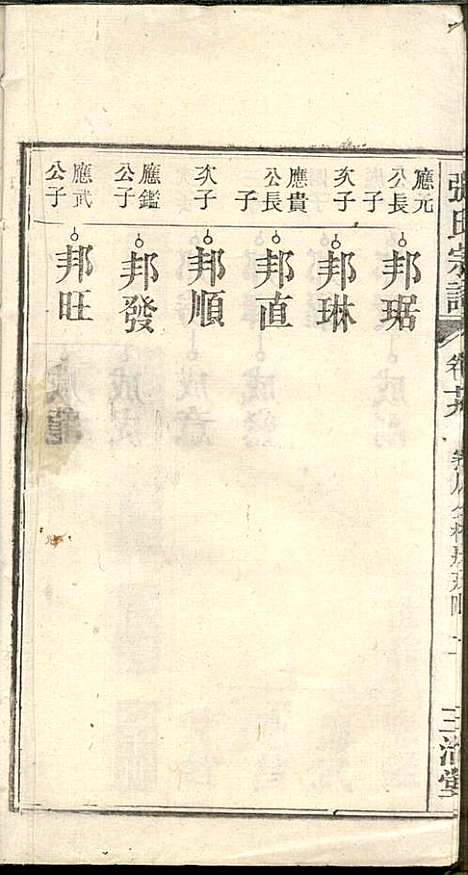 張氏宗譜
三治堂
應元公長子
邦琚
次子
邦琳
應貴公長子
邦直
次子
邦順
應鑑公子
邦發
應武公子
邦旺